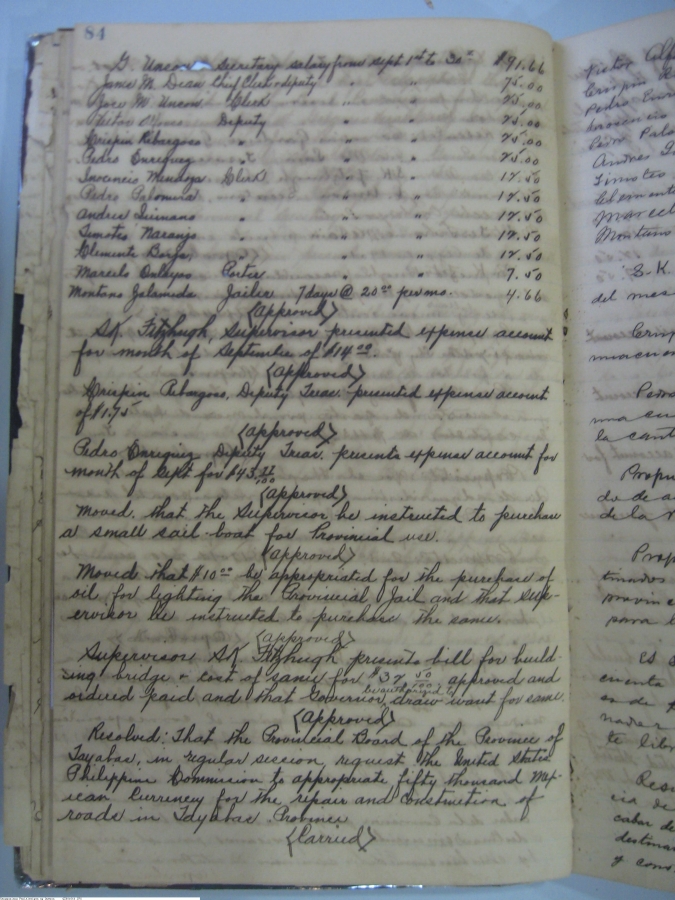 84
G. Unson Secretary salary from Sept 1st to 30th $91.66
James M. Dean Chief Clerk & deputy " " 75.00
Jose M. Unson Clerk " " 25.00
Deputy " " 25.00
Crispin Rebargoso " " " 25.00
Pedro Enriquez " " " 25.00
Inocencio Mendoza Clerk " " 12.50
Pedro Palomera " " " 12.50
Andres " " " 12.50
Timoteo Naranjo " " " 12.50
Clemente Borja, " " " 12.50
Marcelo Porter " " 7.50
Montano Jailer 7 days @ 20.00 per mo. 4.66
(Approved)
S.K. Fitzhugh, Supervisor presented expense account
for month of September of $14.00.
(Approved)
Crispin Rebargoso, Deputy Treas. presented expense account
of $1.75
(Approved)
Pedro Enriquez Deputy Treas. presents expense account for
month of Sept for $43
(Approved)
Moved, that the Supervisor be instructed to purchase
a small sail-boat for Provincial use.
(Approved)
Moved that $10.00 be appropriated for the purchase of
oil for lighting the Provincial Jail and that Sup-
ervisor be instructed to purchase the same.
(Approved)
Supervisor S.K. Fitzhugh presents bill for build-
ing bridge & cost of same for $32 50/100; approved and
ordered paid and that Governor be authorized to draw want for same.
(Approved)
Resolved: That the Provincial Board of the Province of
Tayabas, in regular session, request the United States
Philippine Commission to appropriate fifty thousand Mex-
ican Currency for the repair and construction of
roads in Tayabas Province
(Carried)
Victor
Crispin
Pedro
Inocencio
Andres
Timoteo
Clemente
Marcel
Montano
S.K.
del mes
Crisp
Pedro
la cant
Propu
do de a
de la
Prop
para l
Es
cuenta
te libr
Reso
cia de